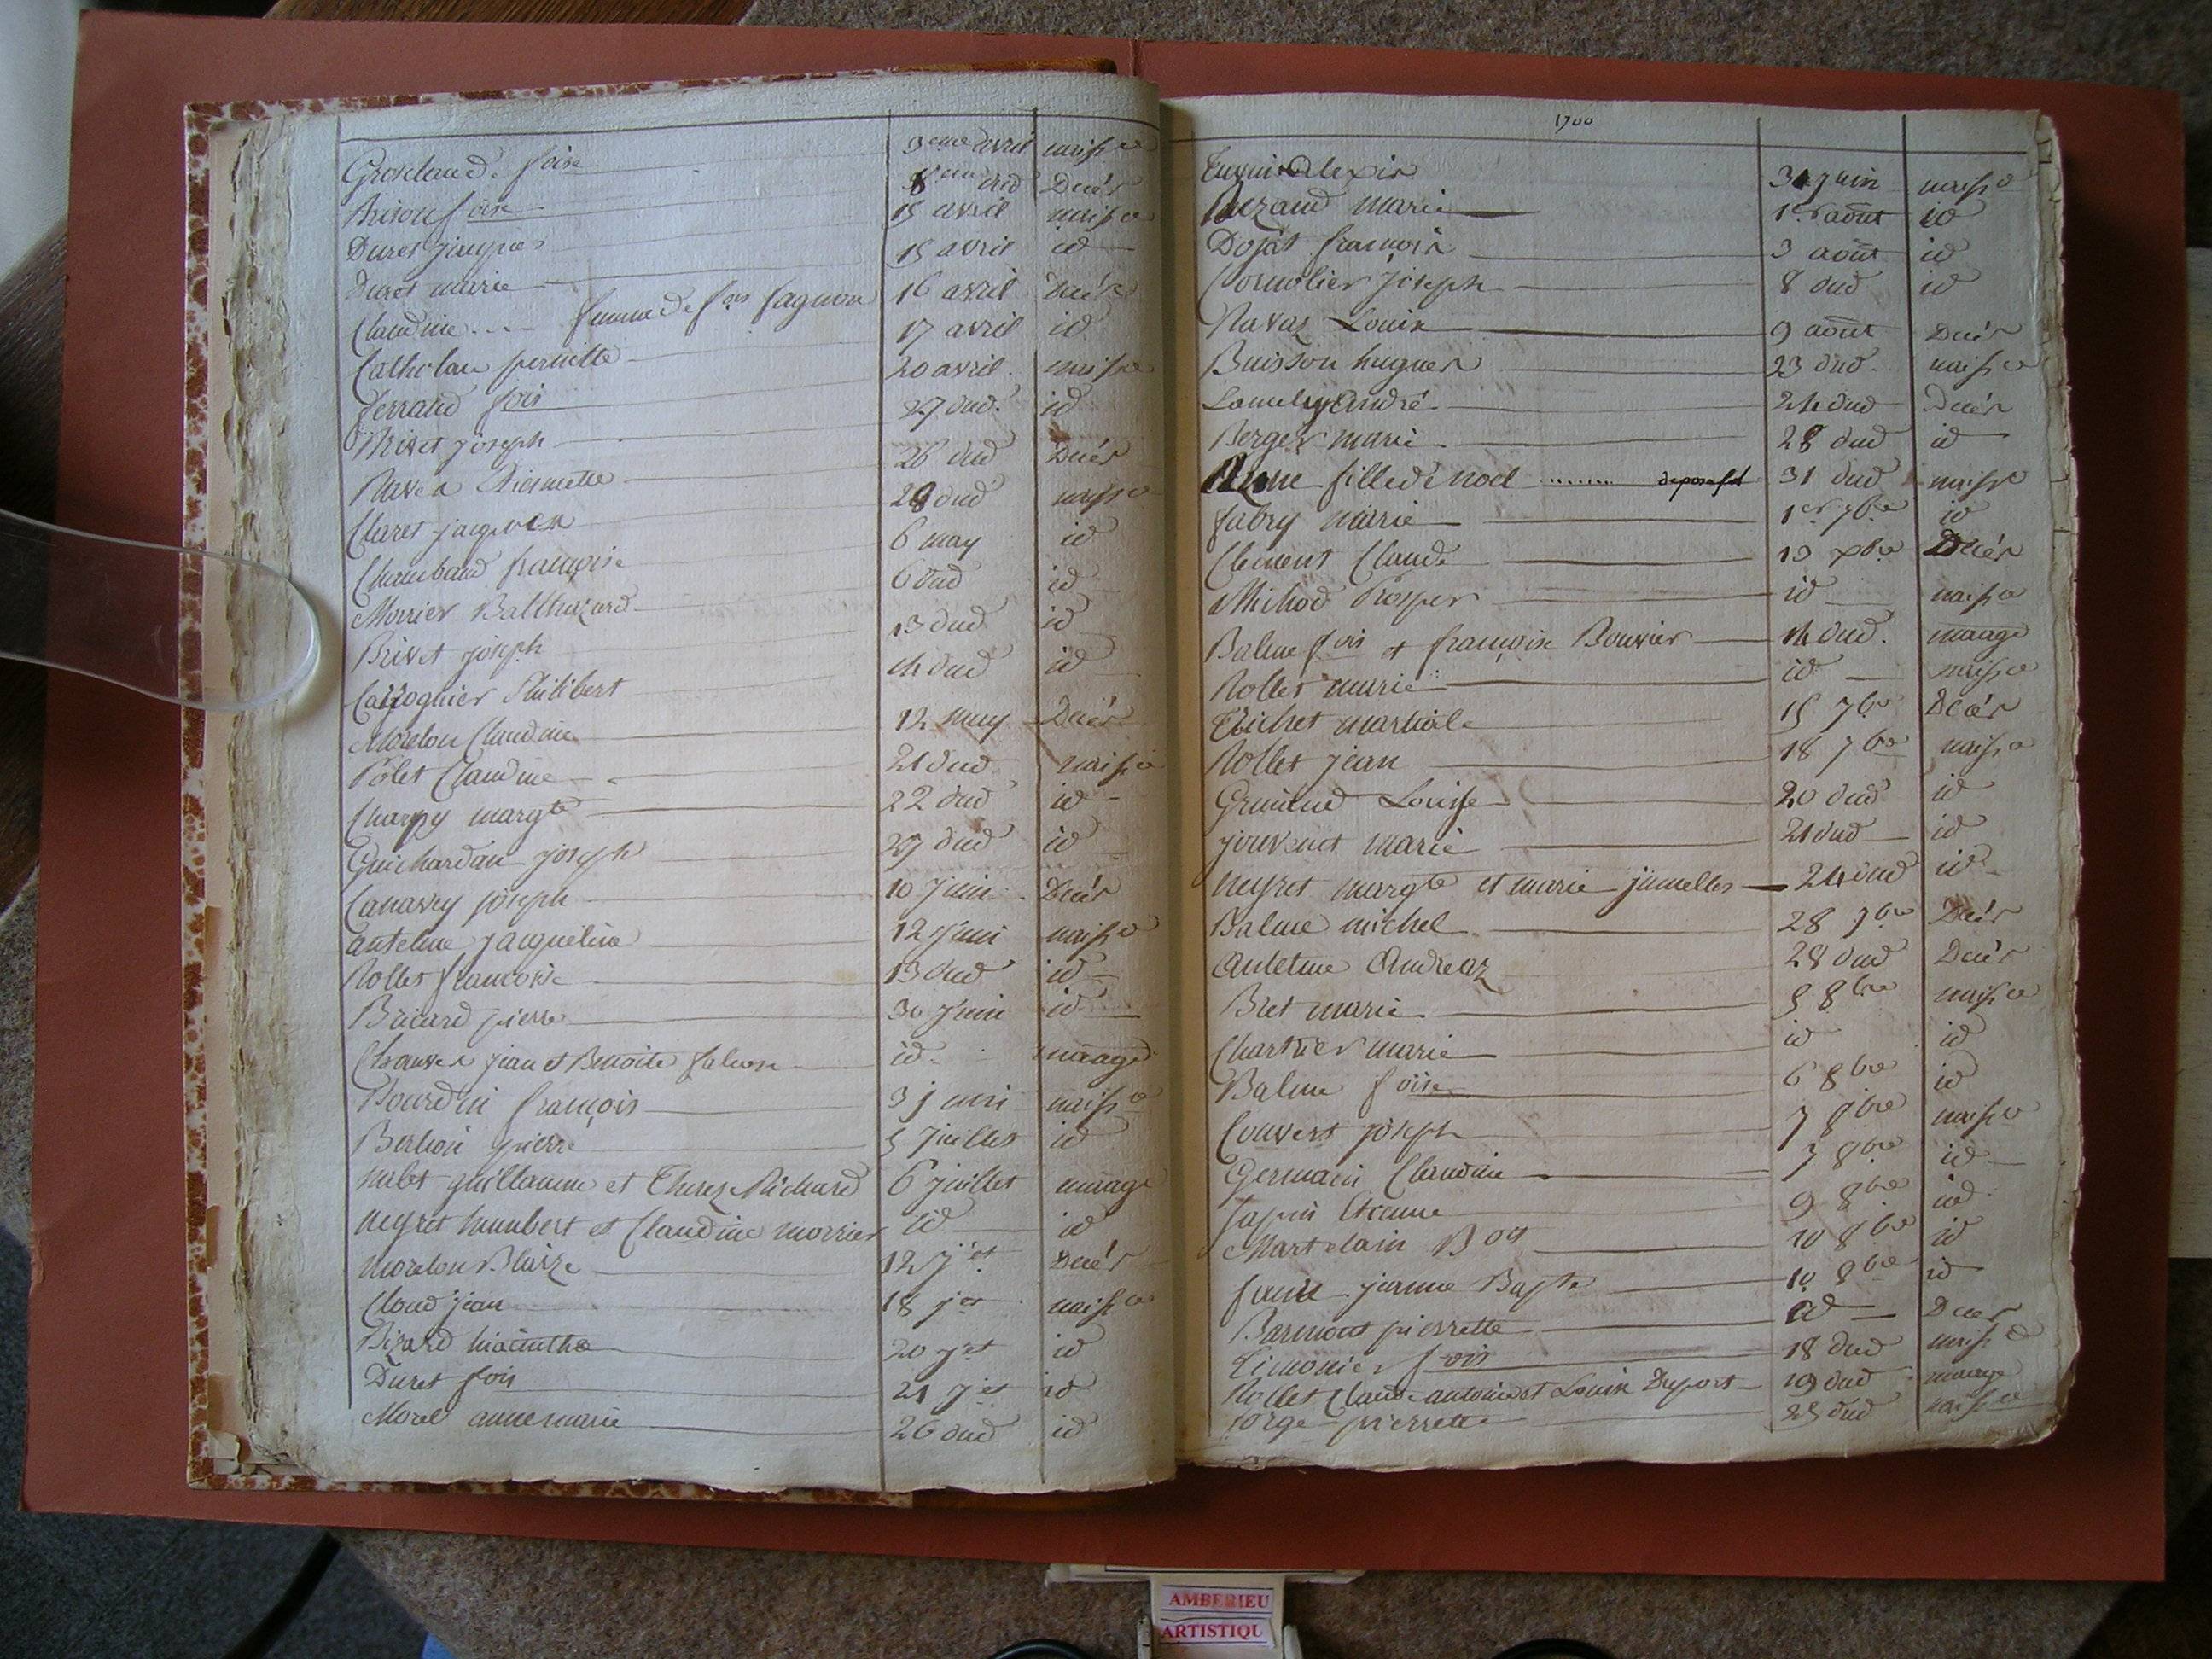 Groslaud foise 3eme avril naissce
Brison foise 8 dud Decés
Duret jacques 15 avril naissce
Duret marie 15 avril id
Claudine .... femme de fois fagnon 16 avril decés
pernette 17 avril id
Ferrand fois 20 avril naissce
Brivet joseph 27 dud id
Ravet 26 dud Decés
Claret jacques 28 dud naissce
Chambaud françoise 6 may id
Morrier Balthazard 6 dud id
Brivet joseph 13 dud id
Philibert 14 dud id
Morelon Claudine 12 may Decés
Polet Claudine 21 dud naissce
Charpy margte 22 dud id
Guichardan joseph 27 dud id
Canavry joseph 10 juin Decés
antelme jacqueline 12 juin naissce
Rollet francoise 13 dud id
Bricard pierre 30 juin id
jean et Benoite falcon id maage
Bourdin françois naissce
Berlion pierre 5 juillet id
milet guillaume et Therez Richard 6 juillet maage
neyret humbert et Claudine morrier id id
morelon Blaize 12 jet Decés
Cloud jean 18 jet naissce
Bizard hiacinthe 20 jet id
Duret fois 21 jet id
Morel anne marie 26 dud id
1700
alexis juin naissce
marie 1er aout id
Dojat françois 3 aout id
Cornolier joseph 8 dud id
Ravaz Louis 9 aout Decés
Buisson hugues 23 dud naissce
andré 24 dud Decés
Berger marie 28 dud id
Anne fille de noel ........ 31 dud naissce
fabry marie 1er 7bre id
Clement Claude 13 Decés
Michod Prosper id naissce
Balme fois et françoise Bouvier 14 dud maage
Rollet marie id naissce
Trichet martiale 15 7bre Decés
Rollet jean 18 7bre naissce
Louise 20 dud id
jouvent marie 21 dud id
neyret margte et marie jumelles 24 dud id
Balme michel 28 7bre Decés
Antelme Andreaz 28 dud Decés
Bret marie 5 8bre naissce
Chartier marie id id
Balme foise 6 8bre id
Couvert joseph 7 8bre naissce
Germain Claudine 7 8bre id
9 8bre id
Martelain 10 8bre id
jeanne Bapte 10 8bre id
Barmont pierrette id Decés
Limonier fois 18 dud naissce
Rollet Claude antoine et Louise Duport 19 dud maage
orge pierrette 25 dud naissce
AMBERIEU
ARTISTIQU